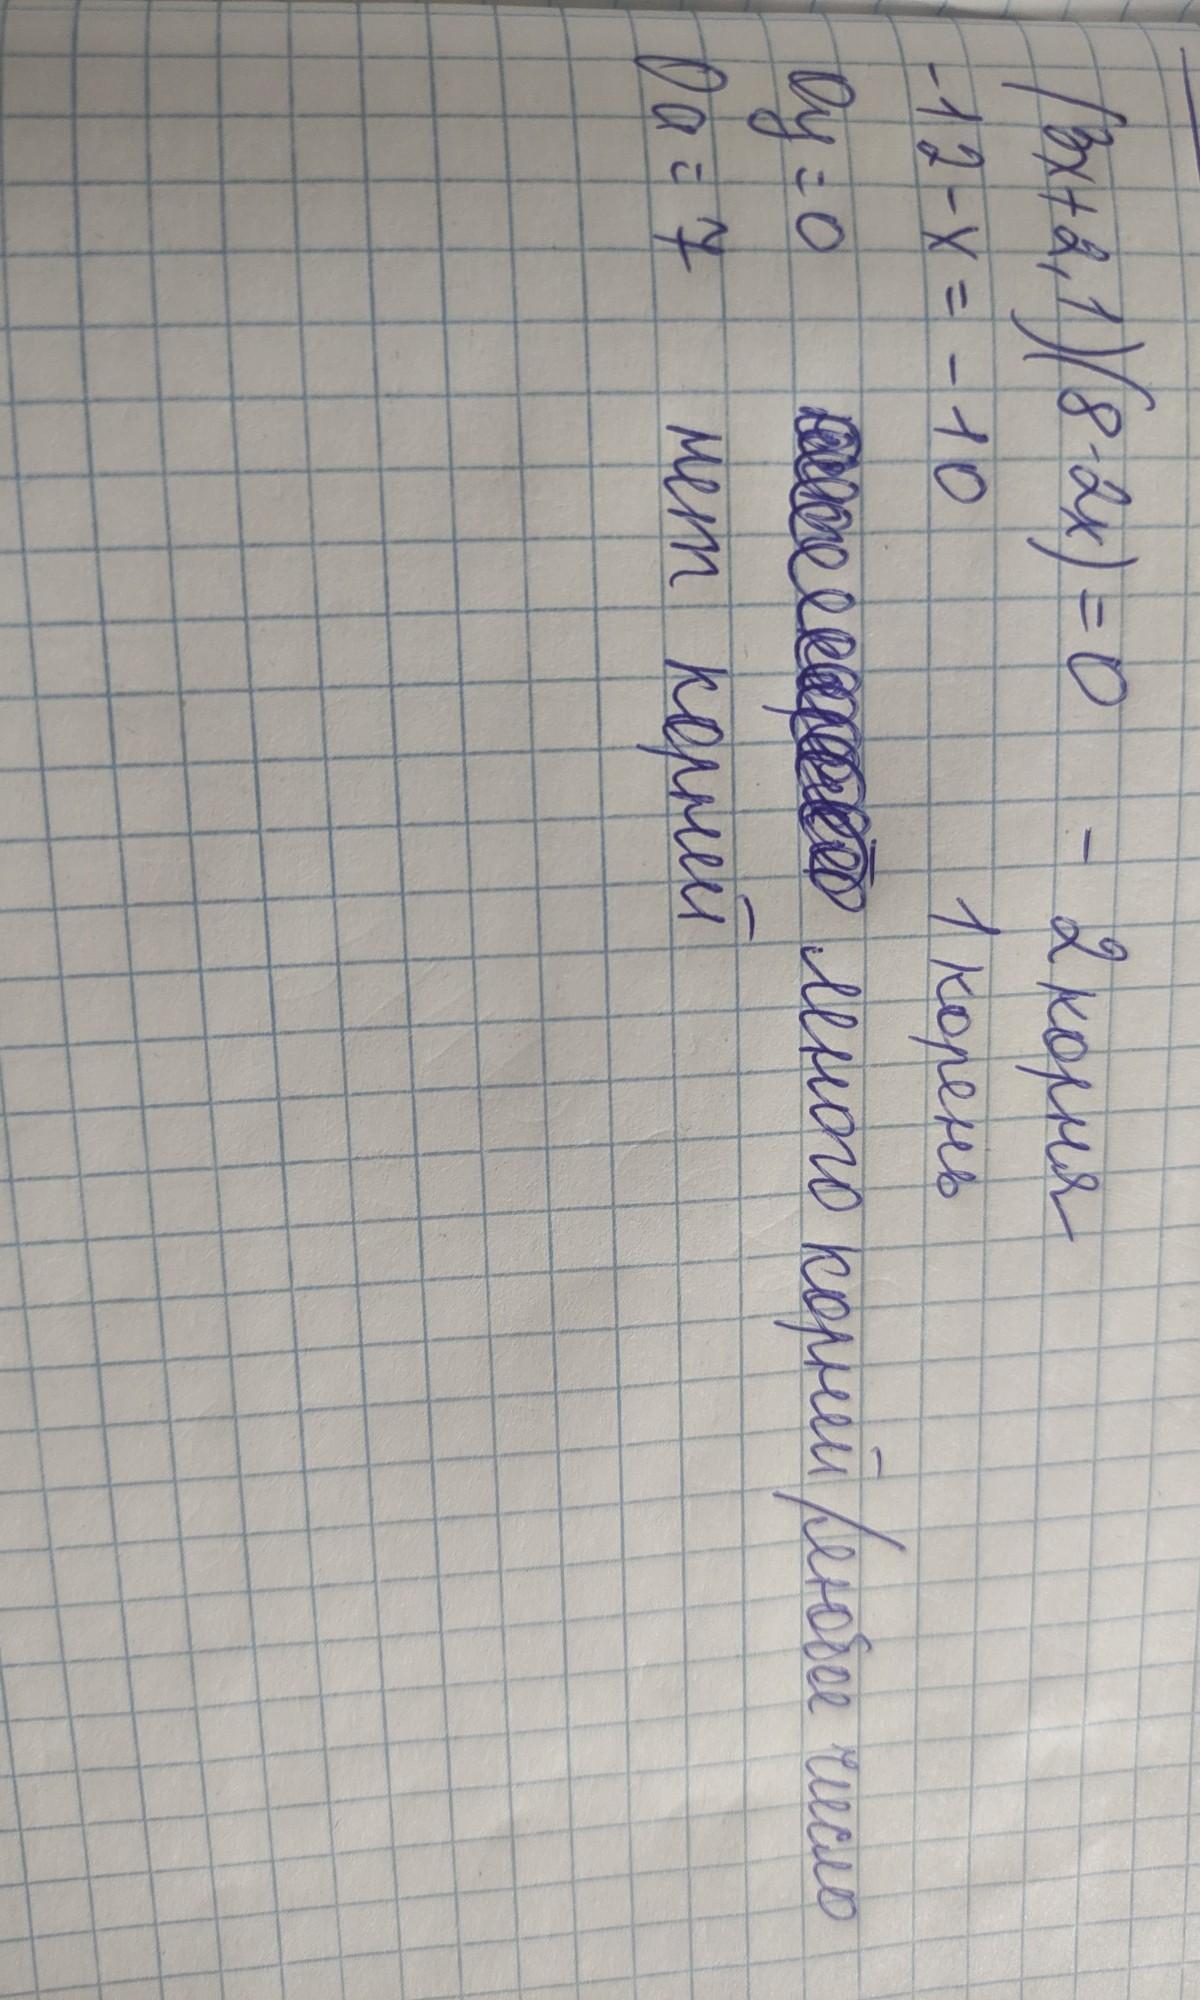 (3x+2,1)(8-2x)=0 - 2 корня
-12-x=-10 1 корень
0y=0 много корней/любое число
0a=7 нет корней